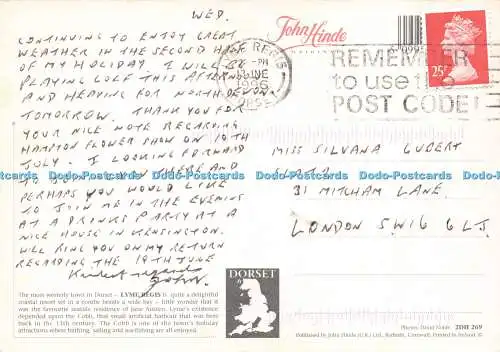 WED.
CONTINUING TO ENJOY GREAT
WEATHER IN THE SECOND HALF
OF MY HOLIDAY. I WILL BE
PLAYING GOLF THIS AFTERNOON
AND HEADING FOR NORTH DEVON
TOMORROW. THANK YOU FOR
YOUR NICE NOTE REGARDING
HAMPTON FLOWER SHOW ON 19TH
JULY. I LOOKING FORWARD
TO YOU THERE AND
PERHAPS YOU WOULD LIKE
TO JOIN ME IN THE EVENING
AT A DRINKS PARTY AT A
NICE HOUSE IN KENSINGTON.
WILL RING YOU ON MY RETURN
REGARDING THE 19TH JUNE
Kindest regards
John.
The most westerly town in Dorset - LYME REGIS is quite a delightful
coastal resort set in a gentle bay - little wonder that it
was the favourite seaside residence of Jane Austen. Lyme's existence
depended upon the Cobb, that small artificial harbour that was here
back in the 13th century. The Cobb is one of the town's holiday
attractions where bathing, sailing and sea-fishing are all enjoyed.
DORSET
John Hinde
ORIGINAL
REGIS
-PM
JUNE
1990
DORSET
REMEMBER
to use the
POST CODE!
25
MISS SILVANA GUBERT
31 MITCHAM LANE.
LONDON SW16 6LJ.
Photo: David Noble
2DH 269
Published by John Hinde (U.K.) Ltd., Redruth, Cornwall. Printed in Ireland
Dodo-Postcards
Dodo-Postcards
Dodo-Postcards
Dodo-Postcards
Dodo-Postcards